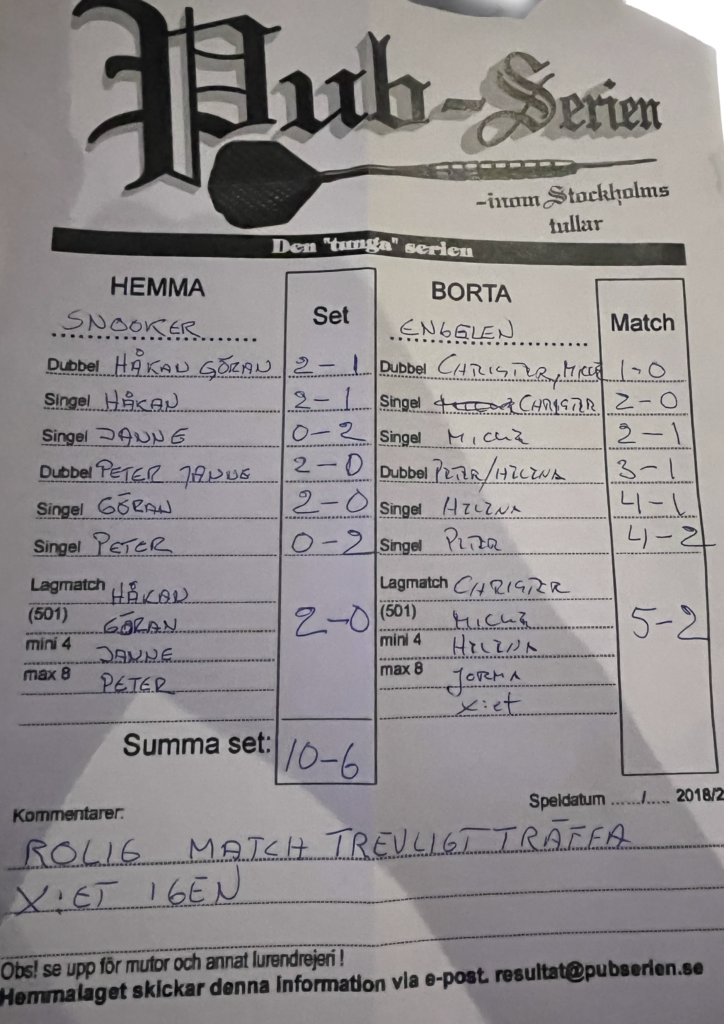 Pub-Serien
-inom Stockholms
tullar
Den "tunga" serien
HEMMA Set BORTA Match
SNOOKER ENGELEN
Dubbel HÅKAN GÖRAN 2-1 Dubbel CHRISTER, MICKE 1-0
Singel HÅKAN 2-1 Singel CHRISTER 2-0
Singel JANNE 0-2 Singel MICKE 2-1
Dubbel PETER JANNE 2-0 Dubbel PETER/HELENA 3-1
Singel GÖRAN 2-0 Singel HELENA 4-1
Singel PETER 0-2 Singel PETER 4-2
Lagmatch HÅKAN Lagmatch CHRISTER
(501) GÖRAN 2-0 (501) MICKE 5-2
mini 4 JANNE mini 4 HELENA
max 8 PETER max 8 JORMA
X:et
Summa set: 10-6
Speldatum ....../..... 2018/2
Kommentarer:
ROLIG MATCH TREVLIGT TRÄFFA
X:ET IGEN
Obs! se upp för mutor och annat lurendrejeri !
Hemmalaget skickar denna information via e-post. resultat@pubserien.se